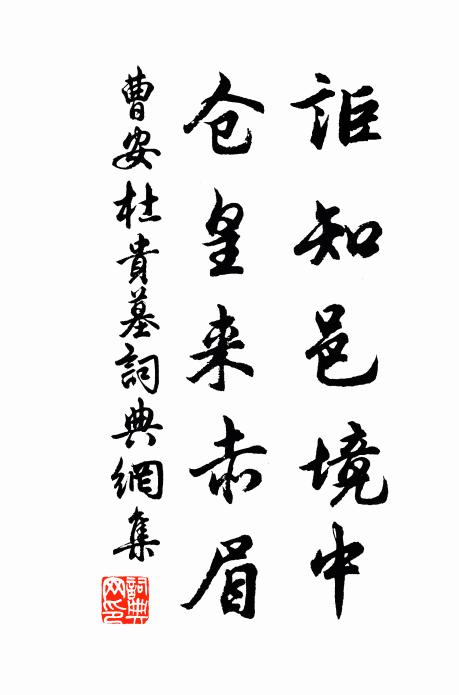 詎知邑境中
仓皇来赤眉
曹安杜貴墓詞典網集
詞典网印